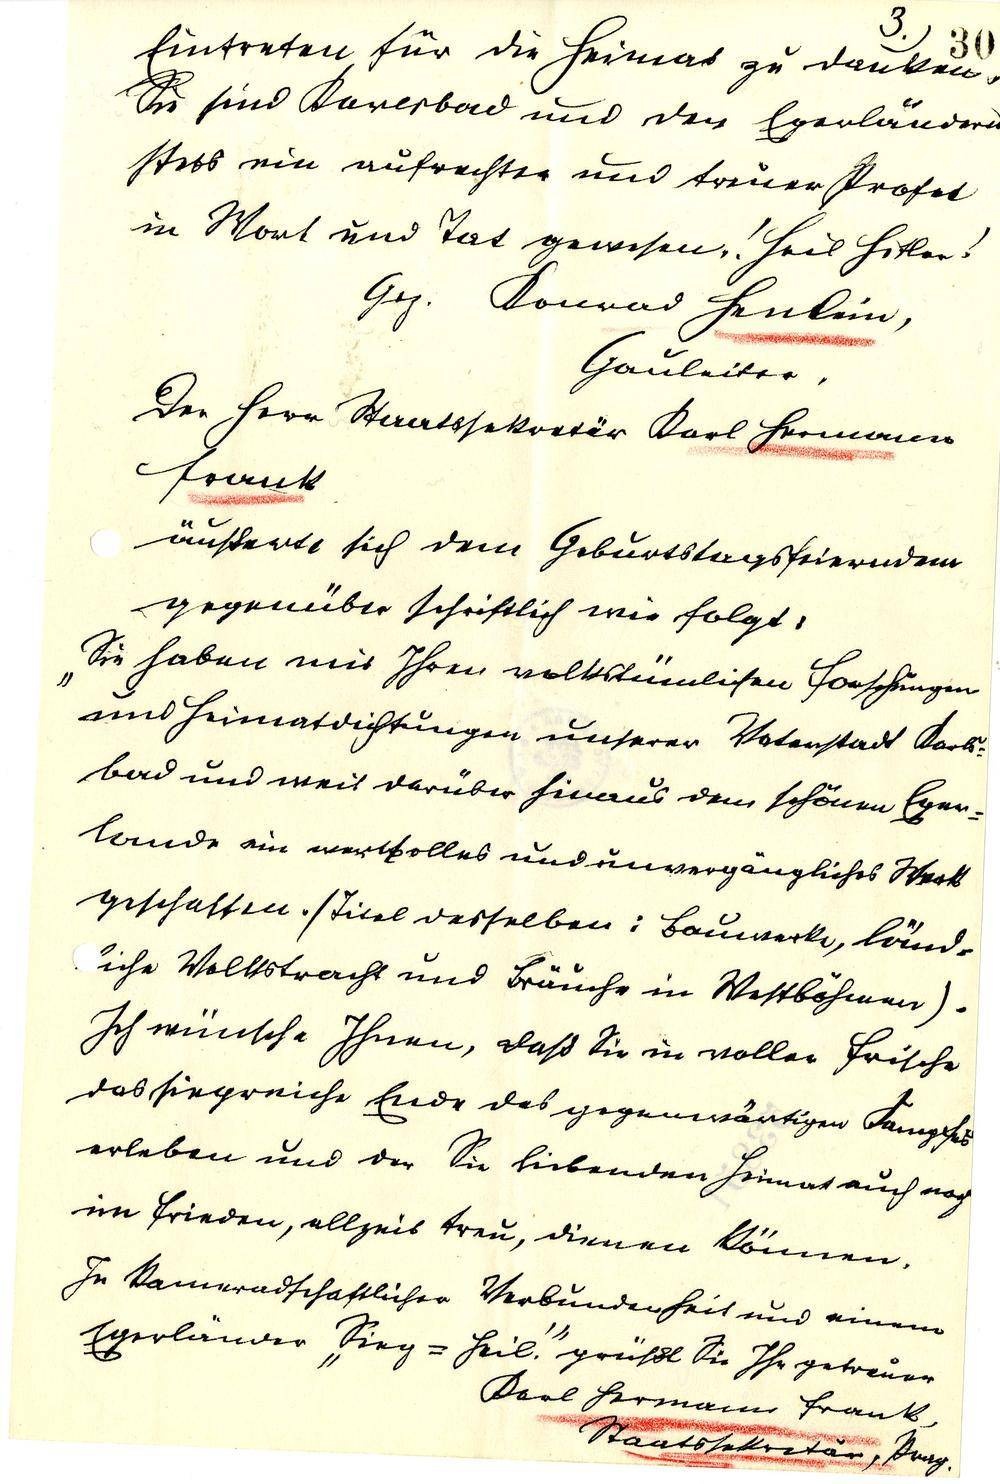 3.) 30
Eintreten für die Heimat zu danken.
Sie sind Karlsbad und den Egerländern
stets ein aufrechter und treuer Profet
in Wort und Tat gewesen.! Heil Hitler!
Gez. Konrad Henlein,
Gauleiter.
Der Herr Staatssekretär Karl Hermann
Frank
äußerte sich dem Geburtstagsfeierndem
gegenüber schriftlich wie folgt:
„Sie haben mit Ihren volkstümlichen Forschungen
und Heimatdichtungen unserer Vaterstadt Karls=
bad und weit darüber hinaus dem schönen Eger=
lande ein wertvolles und unvergängliches Werk
geschaffen. (Titel desselben: Bauwerke, länd-
liche Volkstracht und Bräuche in Westböhmen).
Ich wünsche Ihnen, daß Sie in voller Frische
das siegreiche Ende des gegenwärtigen Kampfes
erleben und der Sie liebenden Heimat auch noch
im Frieden, allzeit treu, dienen können.
In kameradschaftlicher Verbundenheit und einem
Egerländer „Sieg = Heil!“ grüßt Sie Ihr getreuer
Karl Hermann Frank,
Staatssekretär, Prag.